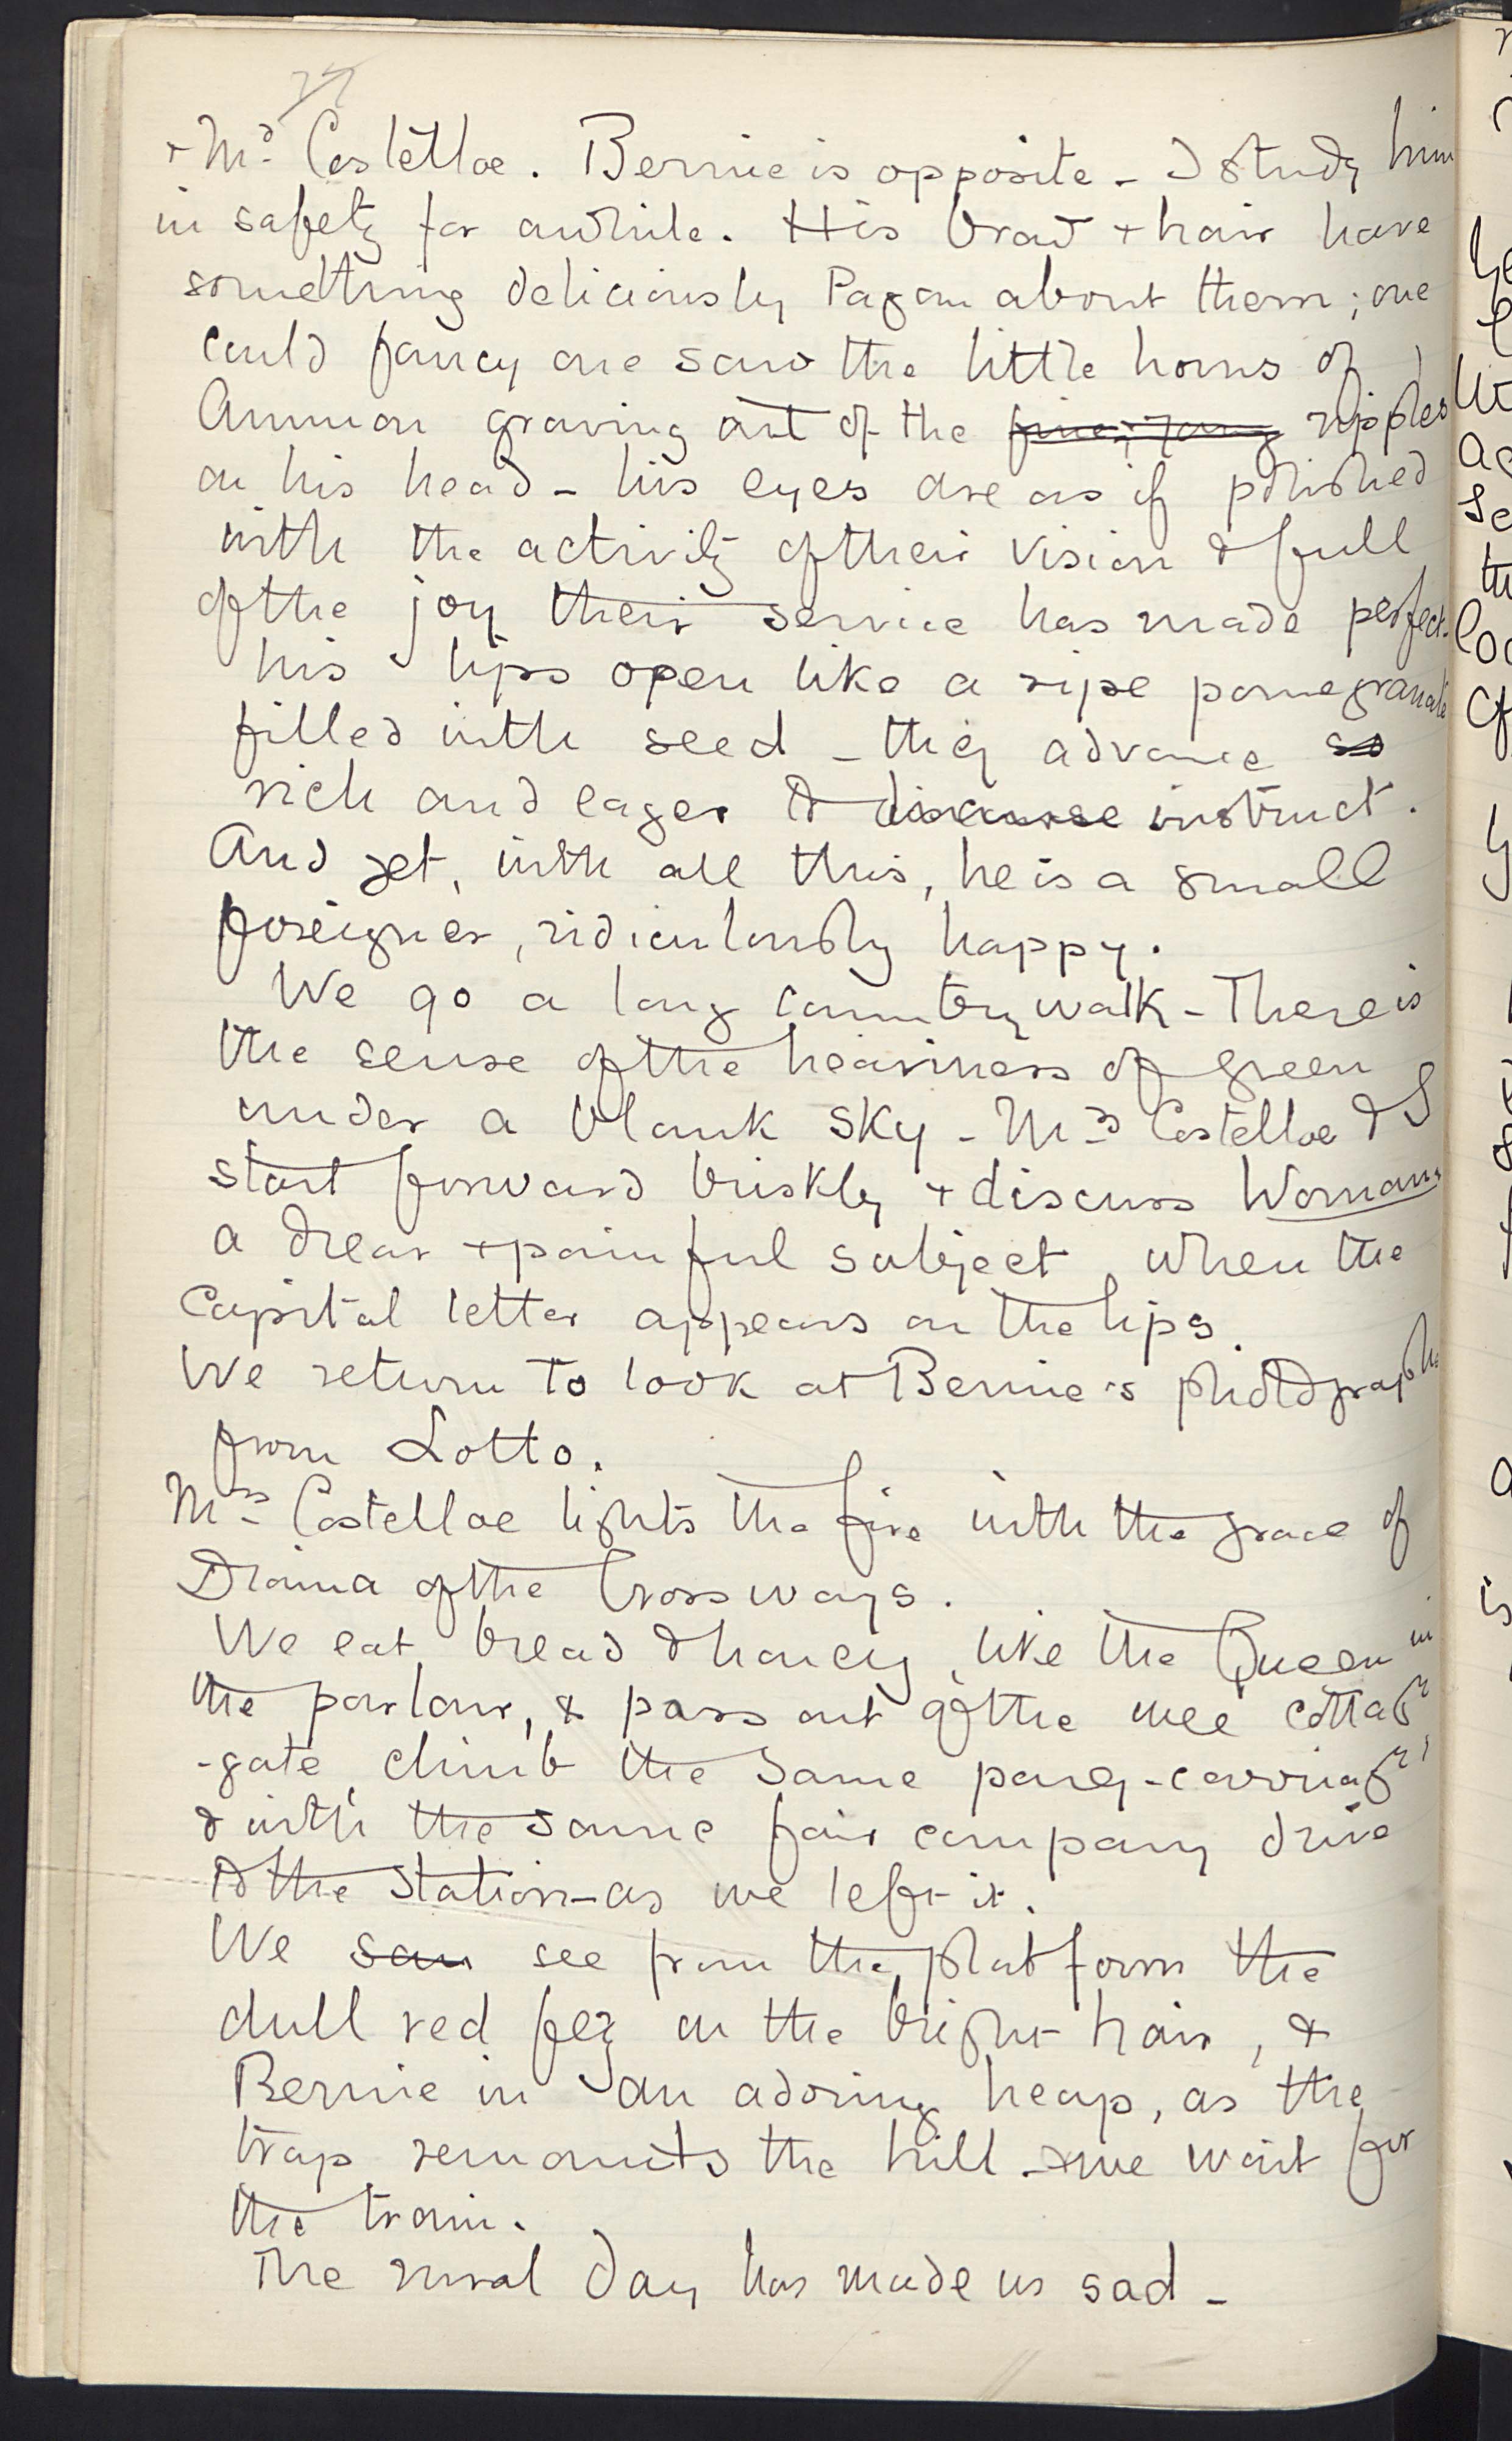 27
+ Mrs Costelloe. Bernie is opposite - I study him
in safety for awhile. His brow + hair have
something deliciously Pagan about them; one
could fancy one saw the little horns of
Ammon growing out of the ripples
on his head - his eyes are as if polished
with the activity of their vision & full
of the joy their service has made perfect.
his lips open like a ripe pomegranate
filled with seed - they advance so
rich and eager to discourse instruct.
And yet, with all this, he is a small
foreigner, ridiculously happy.
We go a long country walk - There is
the sense of the heaviness of green
under a blank sky - Mrs Costelloe & I
start forward briskly + discuss Woman,
a drear + painful subject, when the
Capital letter appears on the lips.
We return to look at Bernie's photographs
from Lotto.
Mrs Costelloe lights the fire with the grace of
Diana of the Crossways.
We eat bread & honey, like the Queen in
the parlour, & pass out of the wee cottage
-gate, climb the same pony-carriage,
& with the same fair company drive
to the Station - as we left it.
We saw see from the platform the
dull red fez on the bright hair, &
Bernie in an adoring heap, as the
trap remounts the hill - & we wait for
the train.
The rural day has made us sad -